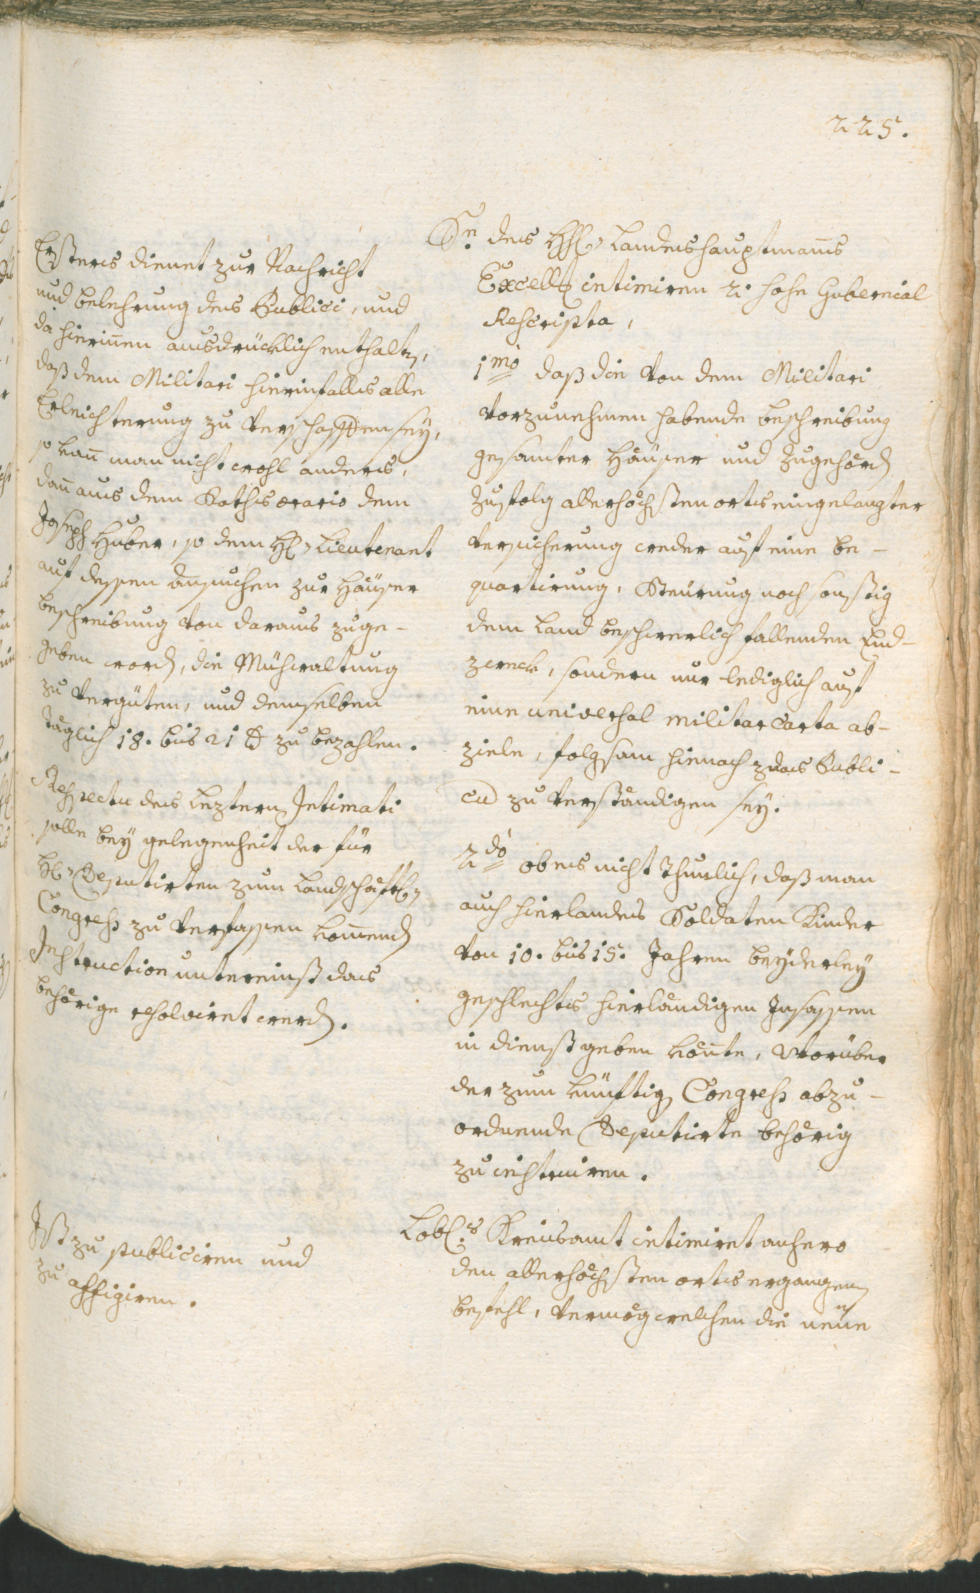 225.
Ersteres dienet zur Nachricht
und belehrung des Publici, und
da hierinnen ausdrücklich enthalten,
daß dem Militari hierinfalls alle
Erleichterung zu verschaffen sey,
so kan man nicht wohl anders,
dan aus dem Raths ærario dem
Joseph Huber, so dem H: Lieutenant
auf dessen Ansuchen zur Häuser
beschreibung von daraus zuge-
geben word, die Mühwaltung
zu vergüten, und demselben
täglich 18. bis 21 x zu bezahlen.
Respectu des leztern Intimati
solle bey gelegenheit der für
H: Deputirten zum Landschäftl:
Congress zu verfassen komend
Instruction untereinst das
behörige resolviret werd.
Ist zu publiciren und
zu affigiren.
Sr. des H: H: Landeshauptmans
Excell: intimiren 2. hohe Gubernial
Rescripta,
1mo daß die von dem Militari
vorzunehmen habende beschreibung
gesamter Häuser und Zugehörd
zufolg allerhöchsten orts eingelangter
versicherung weder auf eine be-
quartirung, Steurung noch sonstig
dem Land beschwerlich fallenden End-
zweck, sondern nur lediglich auf
eine universal militar Carta ab-
ziele, folgsam hienach das Publi-
cum zu verständigen sey.
2do ob es nicht thunlich, daß man
auch hierlandes Soldaten Kinder
von 10. bis 15. Jahren beyderley
geschlechts hierländigen Insassen
in dienst geben könte, worüber
der zum künftig Congress abzu-
ordnende Deputirte behörig
zu instruiren.
Lobl:es Kreisamt intimiret anhero
den allerhöchsten orts ergangen
befehl, vermög welchen die neüe